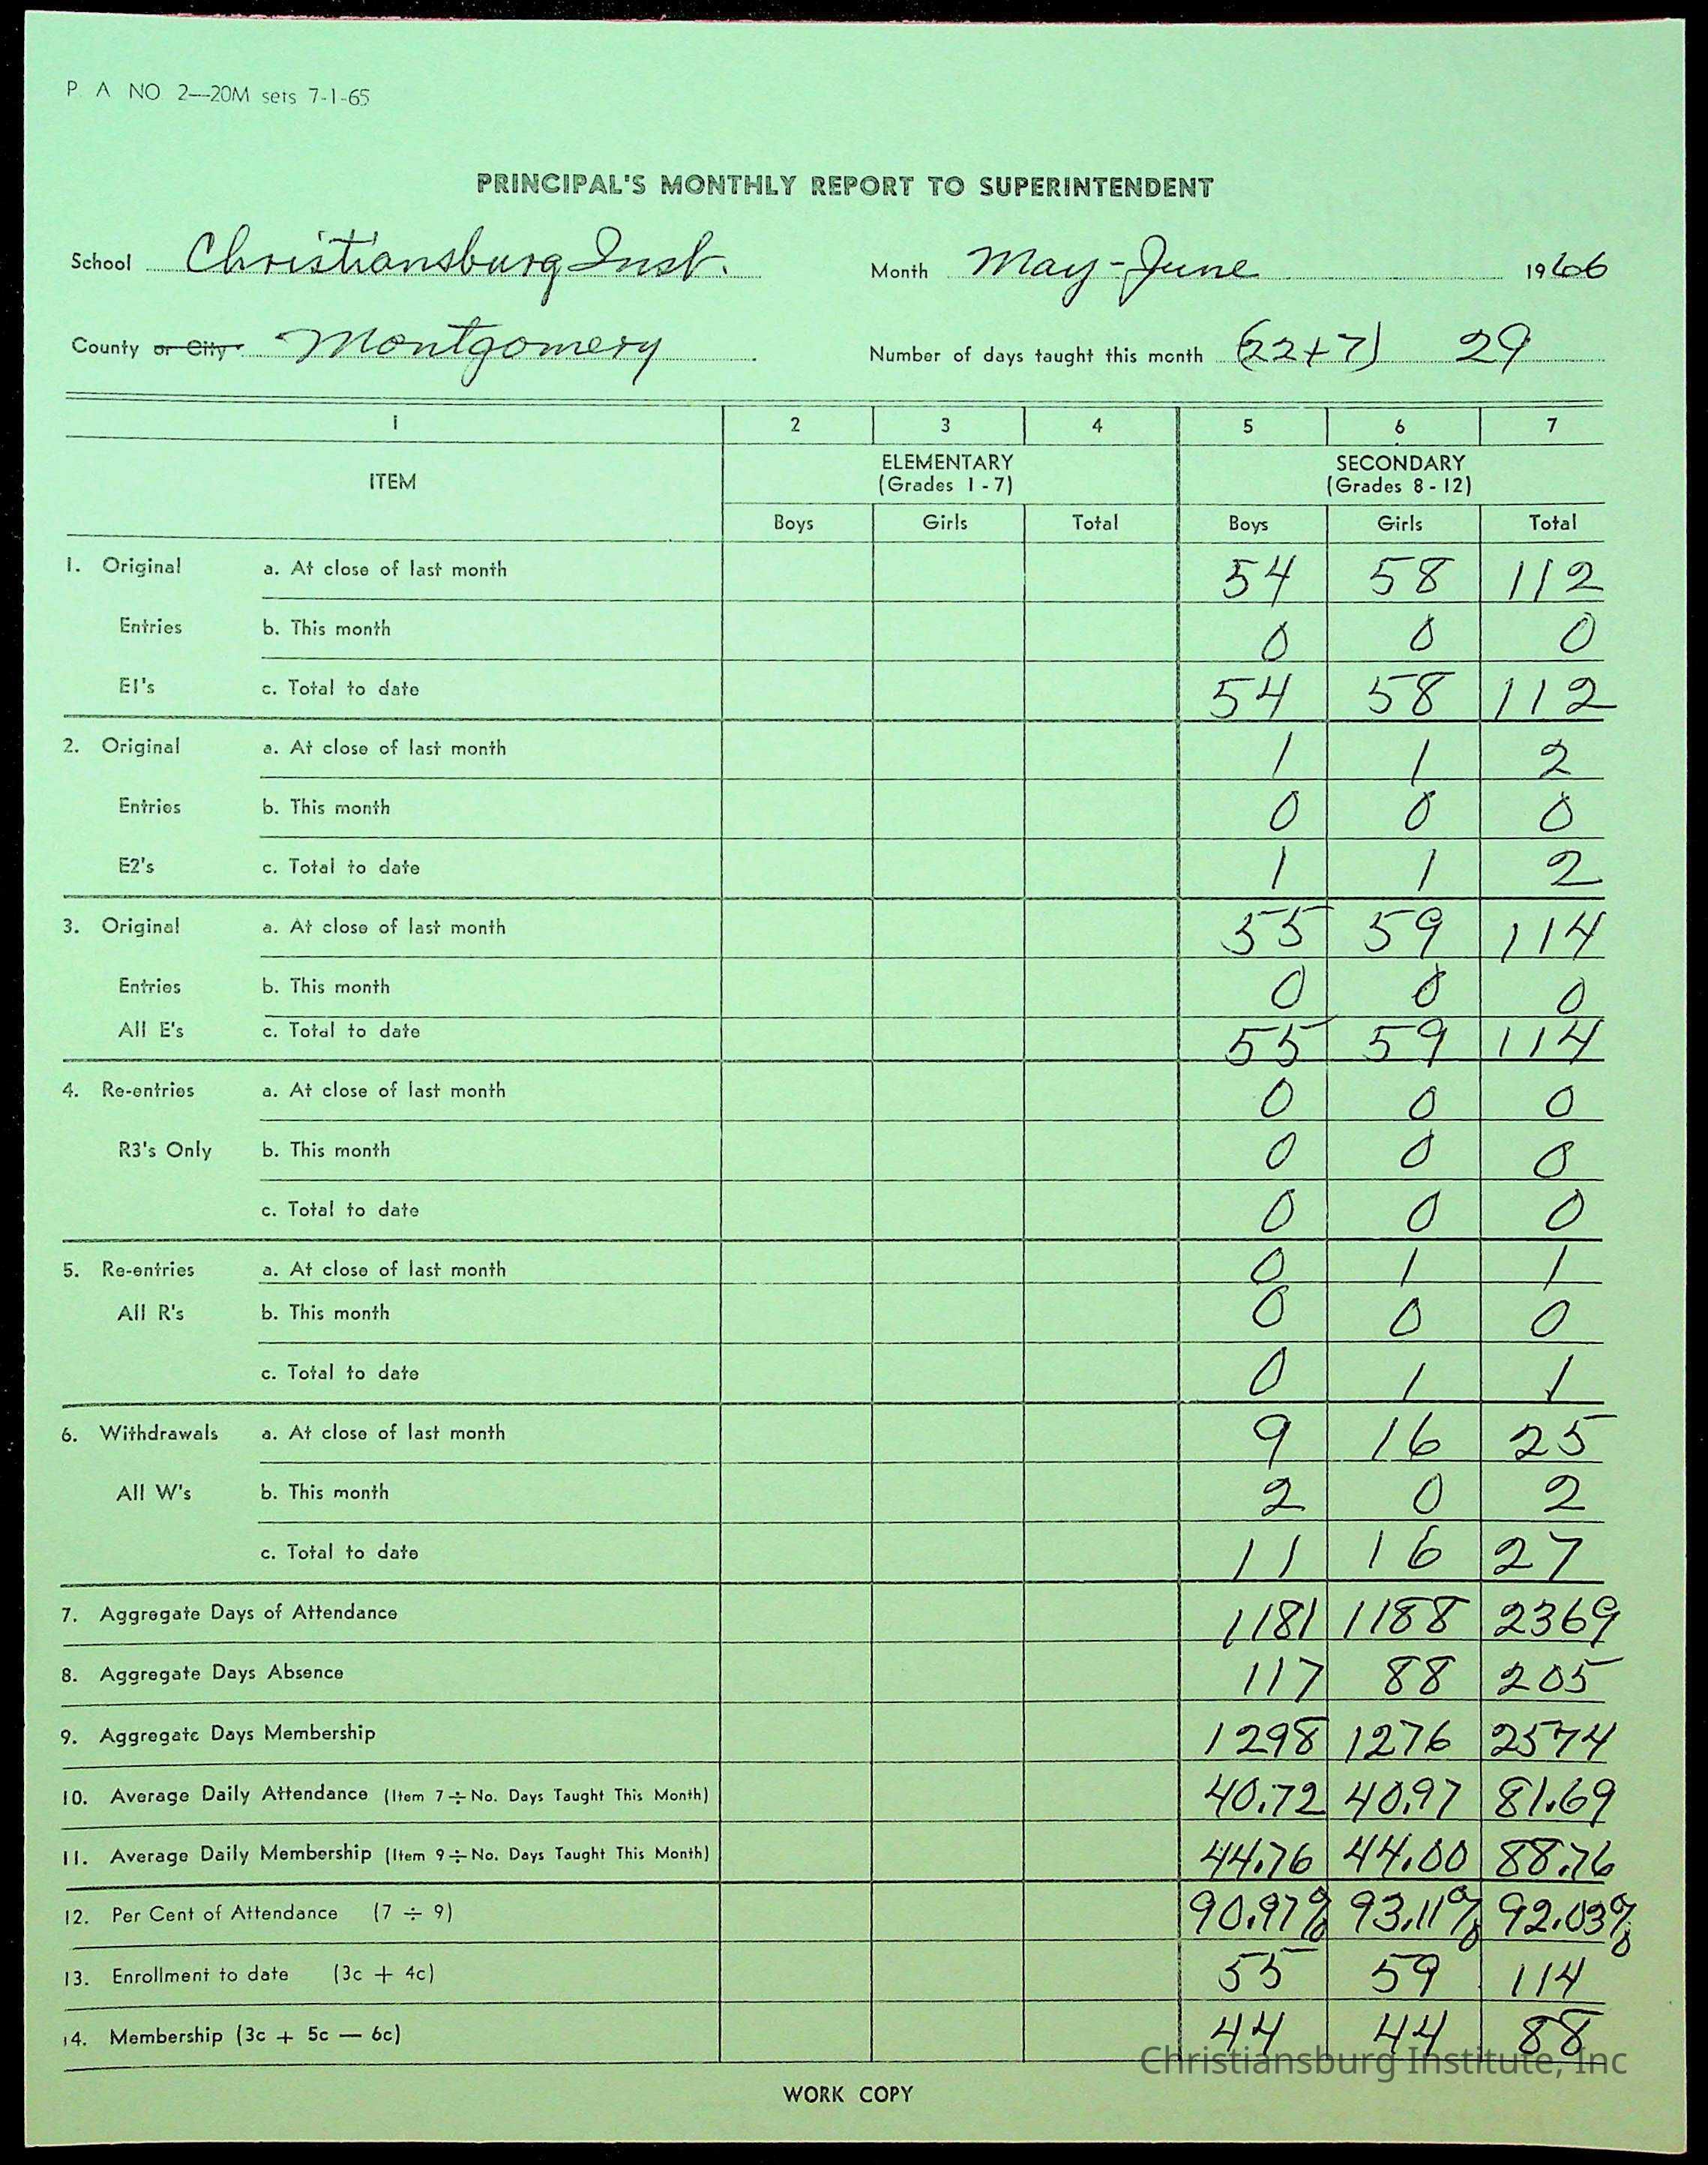 P A NO 2—20M sets 7-1-65
PRINCIPAL'S MONTHLY REPORT TO SUPERINTENDENT
School Christiansburg Inst. Month May-June 1966
County or City Montgomery Number of days taught this month (22+7) 29
1 2 3 4 5 6 7
ITEM ELEMENTARY (Grades 1 - 7) SECONDARY (Grades 8 - 12)
Boys Girls Total Boys Girls Total
1. Original a. At close of last month 54 58 112
Entries b. This month 0 0 0
E1's c. Total to date 54 58 112
2. Original a. At close of last month 1 1 2
Entries b. This month 0 0 0
E2's c. Total to date 1 1 2
3. Original a. At close of last month 55 59 114
Entries b. This month 0 0 0
All E's c. Total to date 55 59 114
4. Re-entries a. At close of last month 0 0 0
R3's Only b. This month 0 0 0
c. Total to date 0 0 0
5. Re-entries a. At close of last month 0 1 1
All R's b. This month 0 0 0
c. Total to date 0 1 1
6. Withdrawals a. At close of last month 9 16 25
All W's b. This month 2 0 2
c. Total to date 11 16 27
7. Aggregate Days of Attendance 1181 1188 2369
8. Aggregate Days Absence 117 88 205
9. Aggregate Days Membership 1298 1276 2574
10. Average Daily Attendance (Item 7 ÷ No. Days Taught This Month) 40.72 40.97 81.69
11. Average Daily Membership (Item 9 ÷ No. Days Taught This Month) 44.76 44.00 88.76
12. Per Cent of Attendance (7 ÷ 9) 90.97% 93.11% 92.03%
13. Enrollment to date (3c + 4c) 55 59 114
14. Membership (3c + 5c — 6c) 44 44 88
Christiansburg Institute, Inc
WORK COPY